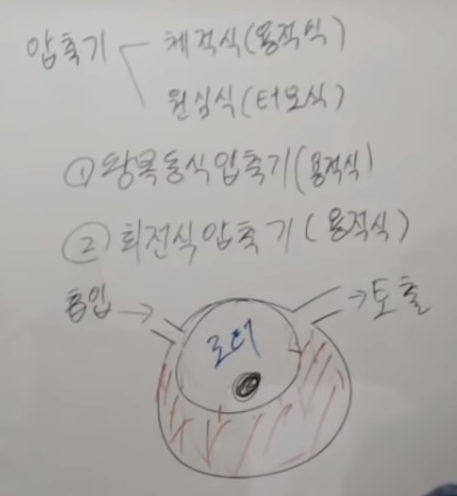 압축기 체적식(용적식)
원심식(터보식)
① 왕복동식압축기(용적식)
② 회전식압축기(용적식)
흡입 → → 토출
로터